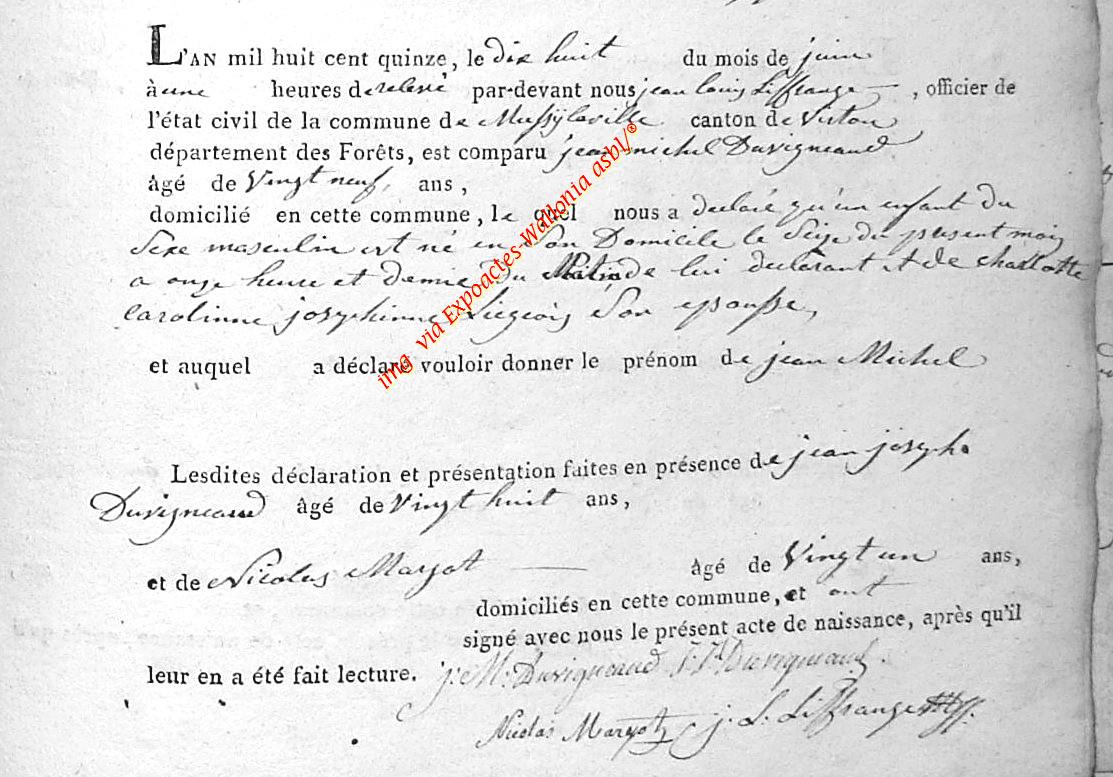 L'AN mil huit cent quinze, le dix huit du mois de juin
à une heures de relevé par-devant nous jean louis Liffrange, officier de
l'état civil de la commune de Mussÿlaville canton de Virton
département des Forêts, est comparu jean michel Duvigneaud
âgé de Vingt neuf ans,
domicilié en cette commune, le quel nous a declaré qu'un enfant du
Sexe masculin est né en Son Domicile le Seize du present mois
a onze heure et demie du Matin de lui declarant et de charlotte
Carolinne josephinne Liegeois Son epousse,
et auquel a déclaré vouloir donner le prénom de jean Michel
Lesdites déclaration et présentation faites en présence de jean joseph
Duvigneaud âgé de Vingt huit ans,
et de Nicolas Margot âgé de Vingt un ans,
domiciliés en cette commune, et ont
signé avec nous le présent acte de naissance, après qu'il
leur en a été fait lecture. j. M. Duvigneaud j. j. Duvigneaud
Nicolas Margot j. L. Liffrange
img via Expoactes-Wallonia asbl/©